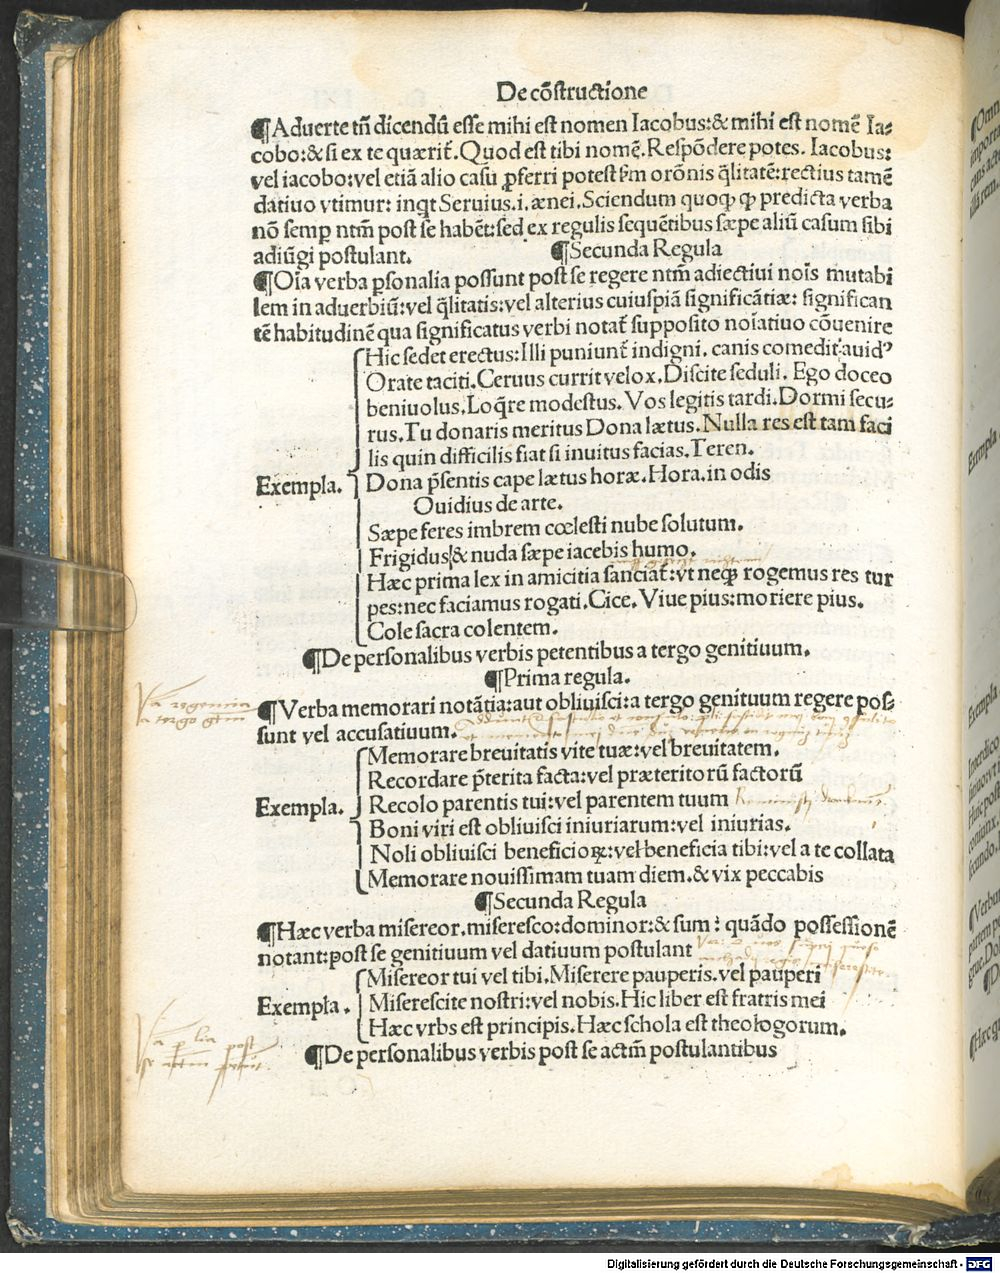 De cõstructione
¶Aduerte tñ dicendũ esse mihi est nomen Iacobus:& mihi est nomẽ Ia⸗
cobo:& si ex te quærit̃. Quod est tibi nomẽ. Respõdere potes. Iacobus:
vel iacobo:vel etiã alio casu ꝓferri potest ẜm orõnis q̃litatẽ:rectius tamẽ
datiuo vtimur: inq̃t Seruius.i.ænei. Sciendum quoqꝫ ꝙ predicta verba
nõ semꝑ ntm̃ post se habẽt:sed ex regulis sequẽtibus sæpe aliũ casum sibi
adiũgi postulant.
¶Secunda Regula
¶Oĩa verba ꝑsonalia possunt post se regere ntm̃ adiectiui noĩs mutabi
lem in aduerbiũ:vel q̃litatis:vel alterius cuiuspiã significãtiæ: significan
tẽ habitudinẽ qua significatus verbi notat̃ supposito noĩatiuo cõuenire
Hic sedet erectus:Illi puniunt̃ indigni. canis comedit auidꝰ
Orate taciti.Ceruus currit velox.Discite seduli. Ego doceo
beniuolus.Loq̃re modestus. Vos legitis tardi.Dormi secu⸗
rus.Tu donaris meritus Dona lætus.Nulla res est tam faci
lis quin difficilis fiat si inuitus facias.Teren.
Exempla.
Dona p̃sentis cape lætus horæ.Hora.in odis
Ouidius de arte.
Sæpe feres imbrem cœlesti nube solutum.
Frigidus & nuda sæpe iacebis humo.
Hæc prima lex in amicitia sanciat̃:vt neqꝫ rogemus res tur
pes:nec faciamus rogati.Cice. Viue pius:moriere pius.
Cole sacra colentem.
¶De personalibus verbis petentibus a tergo genitiuum.
¶Prima regula.
Va regentia
a tergo gtm
¶Verba memorari notãtia:aut obliuisci:a tergo genituum regere pos⸗
sunt vel accusatiuum.
Memorare breuitatis vite tuæ:vel breuitatem.
Recordare p̃terita facta:vel præteritorũ factorũ
Exempla.
Recolo parentis tui:vel parentem tuum
Boni viri est obliuisci iniuriarum:vel iniurias.
Noli obliuisci beneficioꝝ:vel beneficia tibi:vel a te collata
Memorare nouissimam tuam diem.& vix peccabis
¶Secunda Regula
¶Hæc verba misereor.miseresco:dominor:& sum: quãdo possessionẽ
notant:post se genitiuum vel datiuum postulant
Misereor tui vel tibi.Miserere pauperis.vel pauperi
Exempla.
Miserescite nostri:vel nobis.Hic liber est fratris mei
Hæc vrbs est principis.Hæc schola est theologorum.
¶De personalibus verbis post se actm̃ postulantibus
Digitalisierung gefördert durch die Deutsche Forschungsgemeinschaft - DFG